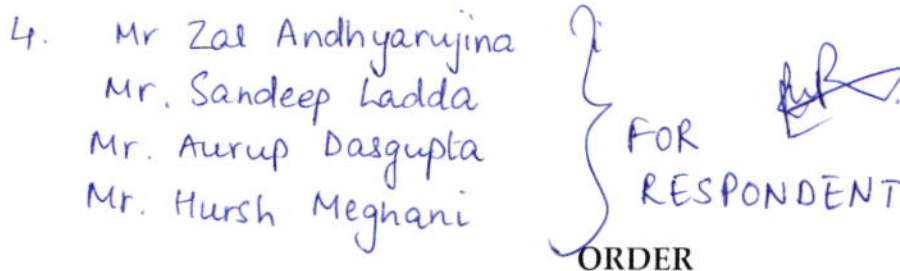 4. Mr Zal Andhyarujina
Mr. Sandeep Ladda
Mr. Aurup Dasgupta
Mr. Hursh Meghani
FOR
RESPONDENT
ORDER